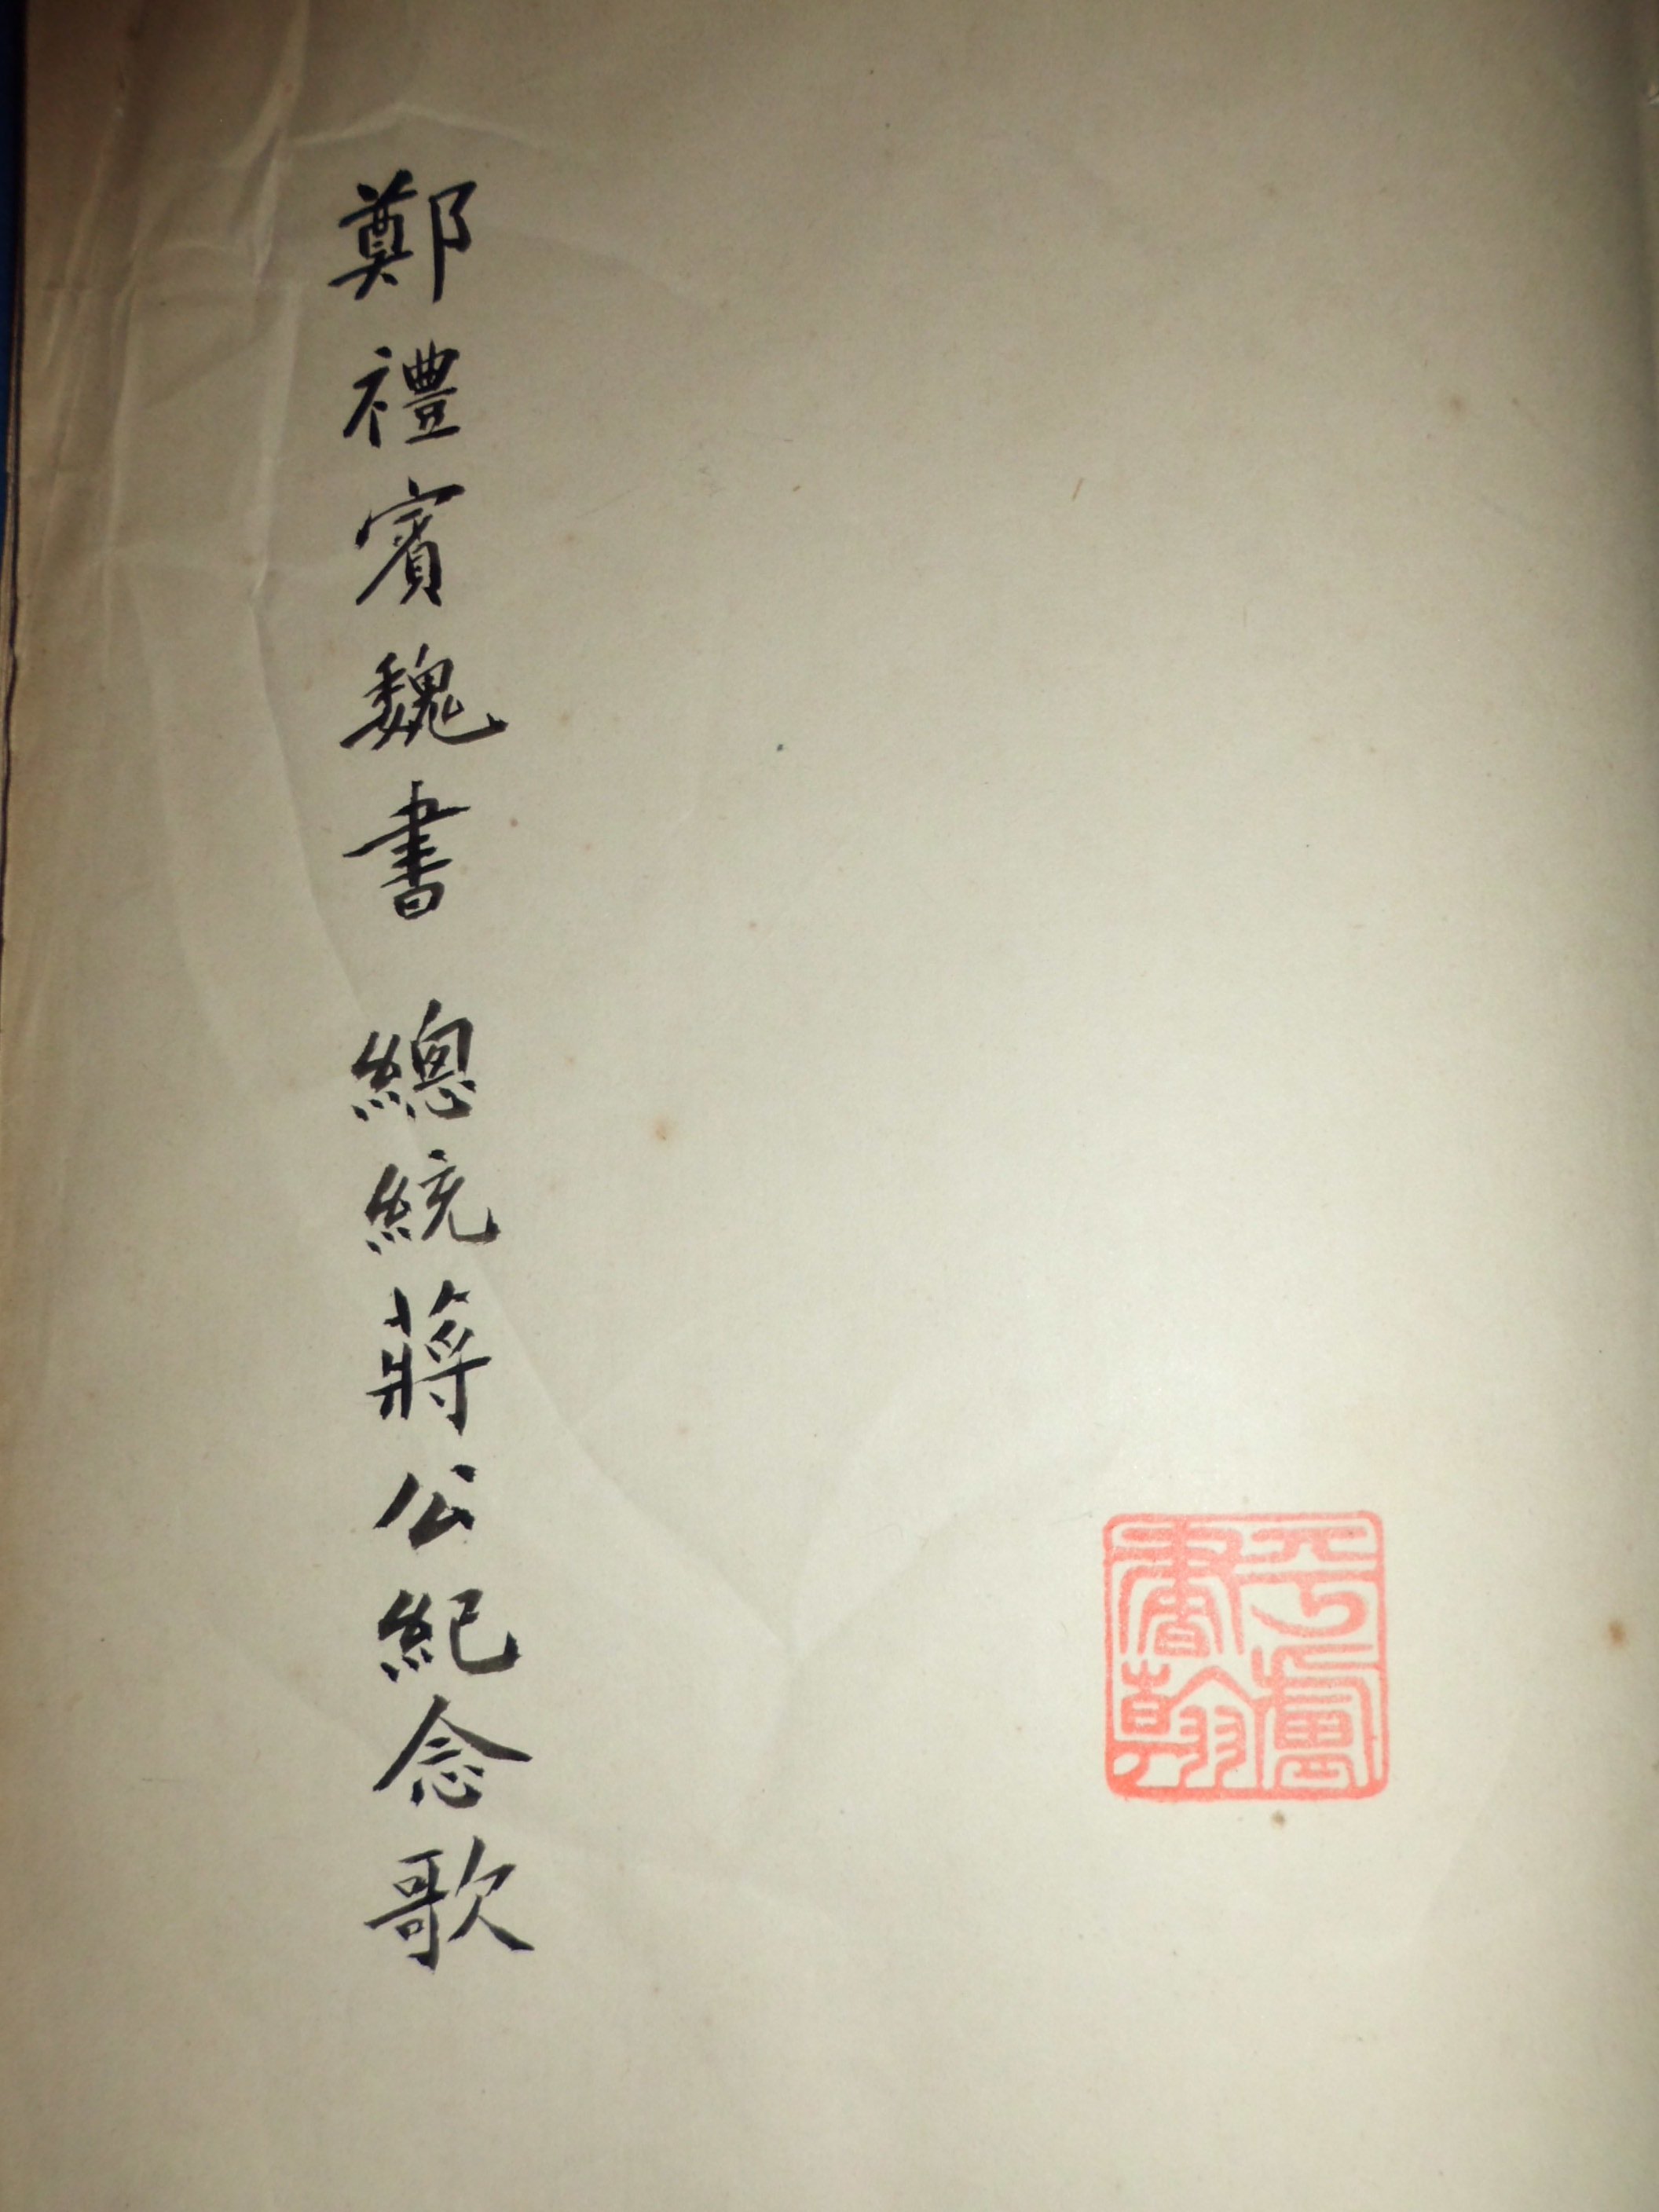 鄭禮賓魏書　總統蔣公紀念歌